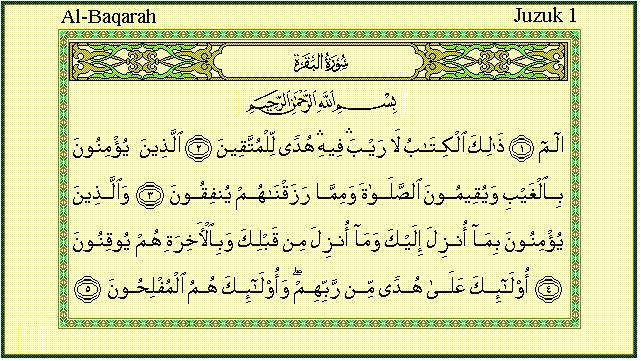 Al-Baqarah
Juzuk 1
سُورَةُ الْبَقَرَةِ
بِسْمِ اللَّهِ الرَّحْمَٰنِ الرَّحِيمِ
الٓمٓ ١ ذَٰلِكَ الْكِتَابُ لَا رَيْبَ ۛ فِيهِ ۛ هُدًى لِّلْمُتَّقِينَ ٢ الَّذِينَ يُؤْمِنُونَ
بِالْغَيْبِ وَيُقِيمُونَ الصَّلَوٰةَ وَمِمَّا رَزَقْنَاهُمْ يُنفِقُونَ ٣ وَالَّذِينَ
يُؤْمِنُونَ بِمَآ أُنزِلَ إِلَيْكَ وَمَآ أُنزِلَ مِن قَبْلِكَ وَبِالْأَخِرَةِ هُمْ يُوقِنُونَ
٤ أُوْلَٰٓئِكَ عَلَىٰ هُدًى مِّن رَّبِّهِمْ ۖ وَأُوْلَٰٓئِكَ هُمُ الْمُفْلِحُونَ ٥